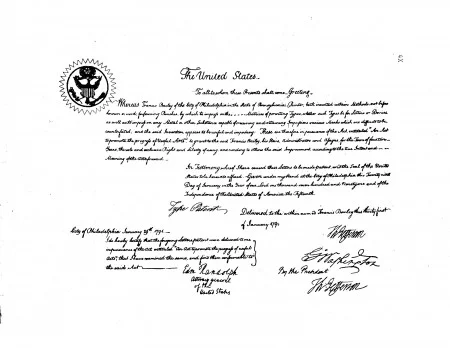 The United States.
To all to whom these Presents shall come, Greeting.
Whereas Francis Bailey of the City of Philadelphia in the State of Pennsylvania, Printer, hath invented certain Methods not before
known of forming Punches by which to impress
as well as to impress on any Metal or other Substance capable of receiving and retaining Impressions various Marks which are difficult to be
counterfeited, and the said Invention appears to be useful and important. These are therefore in pursuance of the Act entitled "An Act
to promote the progress of Useful Arts" to grant to the said Francis Bailey, his Heirs, Administrators and Assigns for the Term of fourteen
Years, the sole and exclusive Right and Liberty of using and vending to others the said Improvement according to the
Meaning of the Act aforesaid.
In Testimony whereof I have caused these Letters to be made patent and the Seal of the United
States to be hereunto affixed. Given under my Hand at the City of Philadelphia this Twenty ninth
Day of January, in the Year of our Lord one thousand seven hundred and Ninety one and of the
Independence of the United States of America the Fifteenth
Type Patent
Delivered to the within named Francis Bailey this thirty first
of January 1791
City of Philadelphia January 29th 1791.
I do hereby Certify that the foregoing letters patent were delivered to me
in pursuance of the Act entitled "An Act to promote the progress of useful
Arts", that I have examined the same, and find them conformable to
the said Act
Edm Randolph
Attorney general
of the
United States
Th Jefferson
G Washington
By the President
Th Jefferson